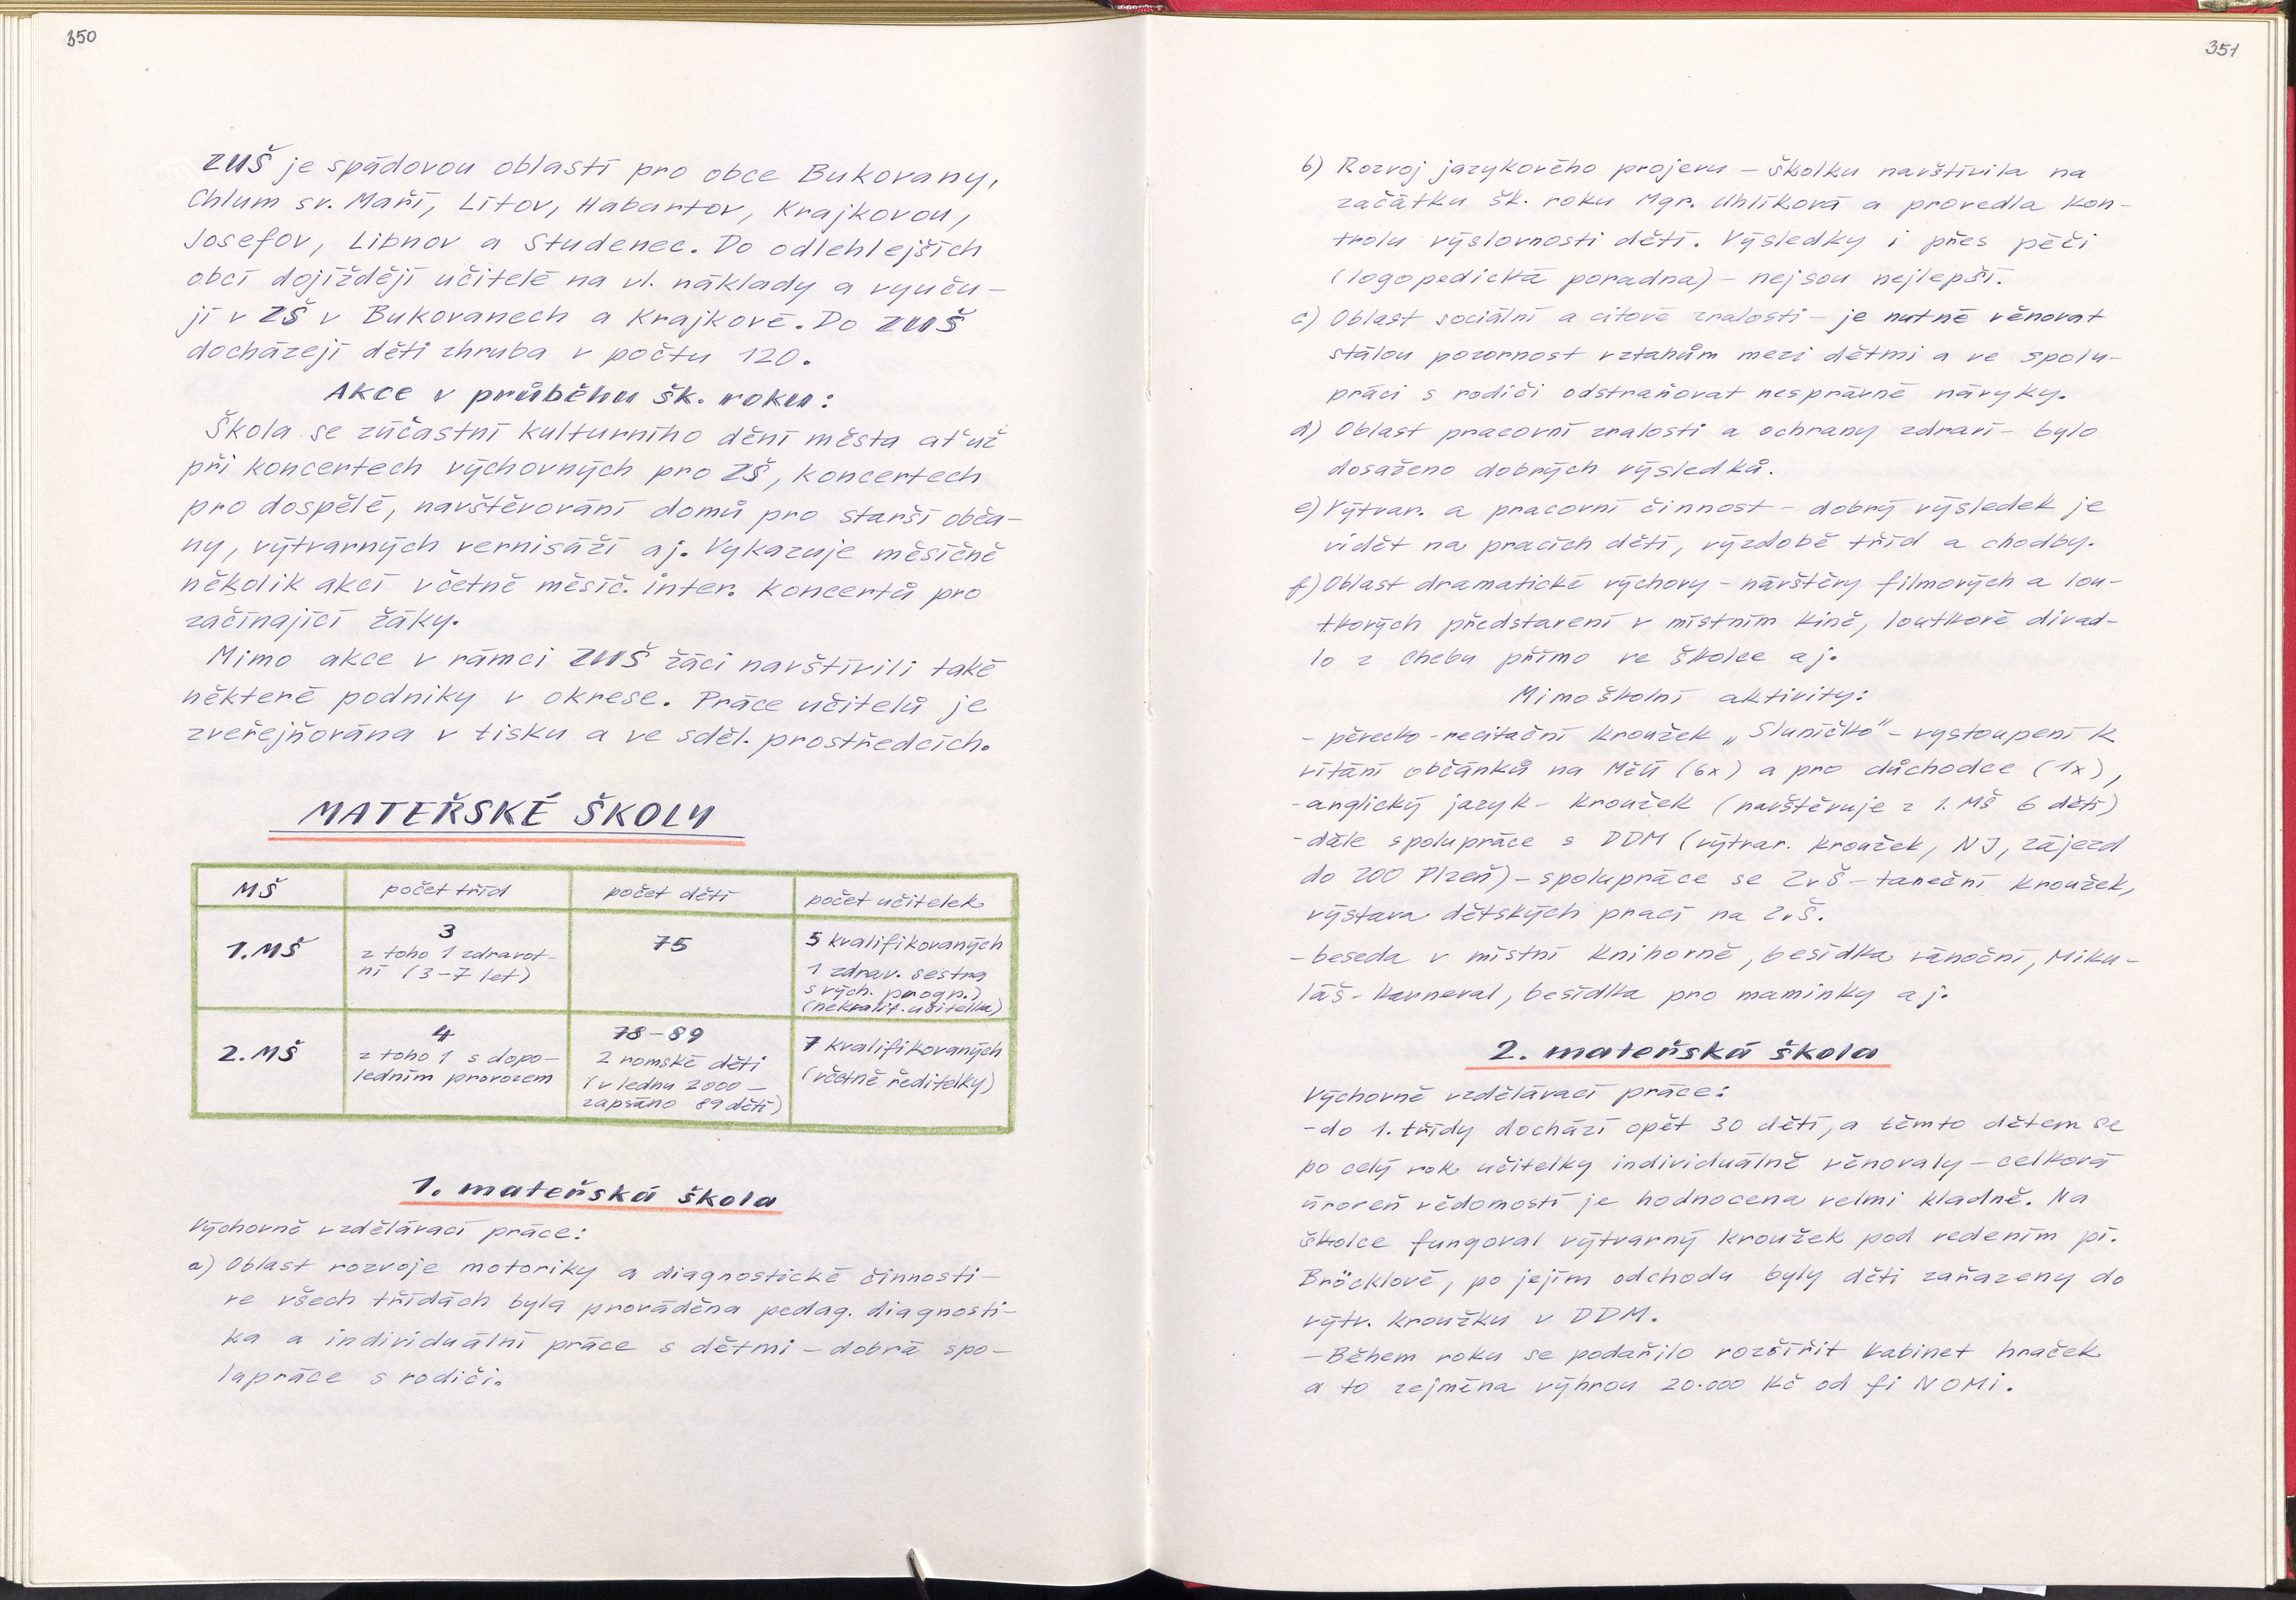 350
ZUŠ je spádovou oblastí pro obce Bukovany,
Chlum sv. Maří, Lítov, Habartov, Krajkovou,
Josefov, Libnov a Studenec. Do odlehlejších
obcí dojíždějí učitelé na vl. náklady a vyuču-
jí v ZŠ v Bukovanech a Krajkové. Do ZUŠ
docházejí děti zhruba v počtu 120.
Akce v průběhu šk. roku:
Škola se zúčastní kulturního dění města ať už
při koncertech výchovných pro ZŠ, koncertech
pro dospělé, navštěvování domů pro starší obča-
ny, výtvarných vernisáží aj. Vykazuje měsíčně
několik akcí včetně měsíč. inter. koncertů pro
začínající žáky.
Mimo akce v rámci ZUŠ žáci navštívili také
některé podniky v okrese. Práce učitelů je
zveřejňována v tisku a ve sděl. prostředcích.
MATEŘSKÉ ŠKOLY
MŠ počet tříd počet dětí počet učitelek
1. MŠ 3 75 5 kvalifikovaných
z toho 1 zdravot- 1 zdrav. sestra
ní (3-7 let) s vých. progr.)
(nekvalif. učitelka)
2. MŠ 4 78-89 7 kvalifikovaných
z toho 1 s dopo- 2 romské děti (včetně ředitelky)
ledním provozem (v lednu 2000 -
zapsáno 89 dětí)
1. mateřská škola
Výchovně vzdělávací práce:
a) Oblast rozvoje motoriky a diagnostické činnosti-
ve všech třídách byla prováděna pedag. diagnosti-
ka a individuální práce s dětmi - dobrá spo-
lupráce s rodiči.
351
b) Rozvoj jazykového projevu - školku navštívila na
začátku šk. roku Mgr. Uhlíková a provedla kon-
trolu výslovnosti dětí. Výsledky i přes péči
(logopedická poradna) - nejsou nejlepší.
c) Oblast sociální a citové zralosti - je nutné věnovat
stálou pozornost vztahům mezi dětmi a ve spolu-
práci s rodiči odstraňovat nesprávné návyky.
d) Oblast pracovní zralosti a ochrany zdraví - bylo
dosaženo dobrých výsledků.
e) Výtvar. a pracovní činnost - dobrý výsledek je
vidět na pracích dětí, výzdobě tříd a chodby.
f) Oblast dramatické výchovy - návštěvy filmových a lou-
tkových představení v místním kině, loutkové divad-
lo z Chebu přímo ve školce aj.
Mimoškolní aktivity:
- pěvecko-recitační kroužek „Sluníčko" - vystoupení k
vítání občánků na MěÚ (6x) a pro důchodce (1x),
- anglický jazyk - kroužek (navštěvuje z 1. MŠ 6 dětí)
- dále spolupráce s DDM (výtvar. kroužek, NJ, zájezd
do ZOO Plzeň) - spolupráce se ZvŠ - taneční kroužek,
výstava dětských prací na ZvŠ.
- beseda v místní knihovně, besídka vánoční, Miku-
láš - karneval, besídka pro maminky aj.
2. mateřská škola
Výchovně vzdělávací práce:
- do 1. třídy dochází opět 30 dětí, a těmto dětem se
po celý rok učitelky individuálně věnovaly - celková
úroveň vědomostí je hodnocena velmi kladně. Na
školce fungoval výtvarný kroužek pod vedením pí.
Bröcklové, po jejím odchodu byly děti zařazeny do
výtv. kroužku v DDM.
- Během roku se podařilo rozšířit kabinet hraček
a to zejména výhrou 20.000 Kč od fi NOMI.